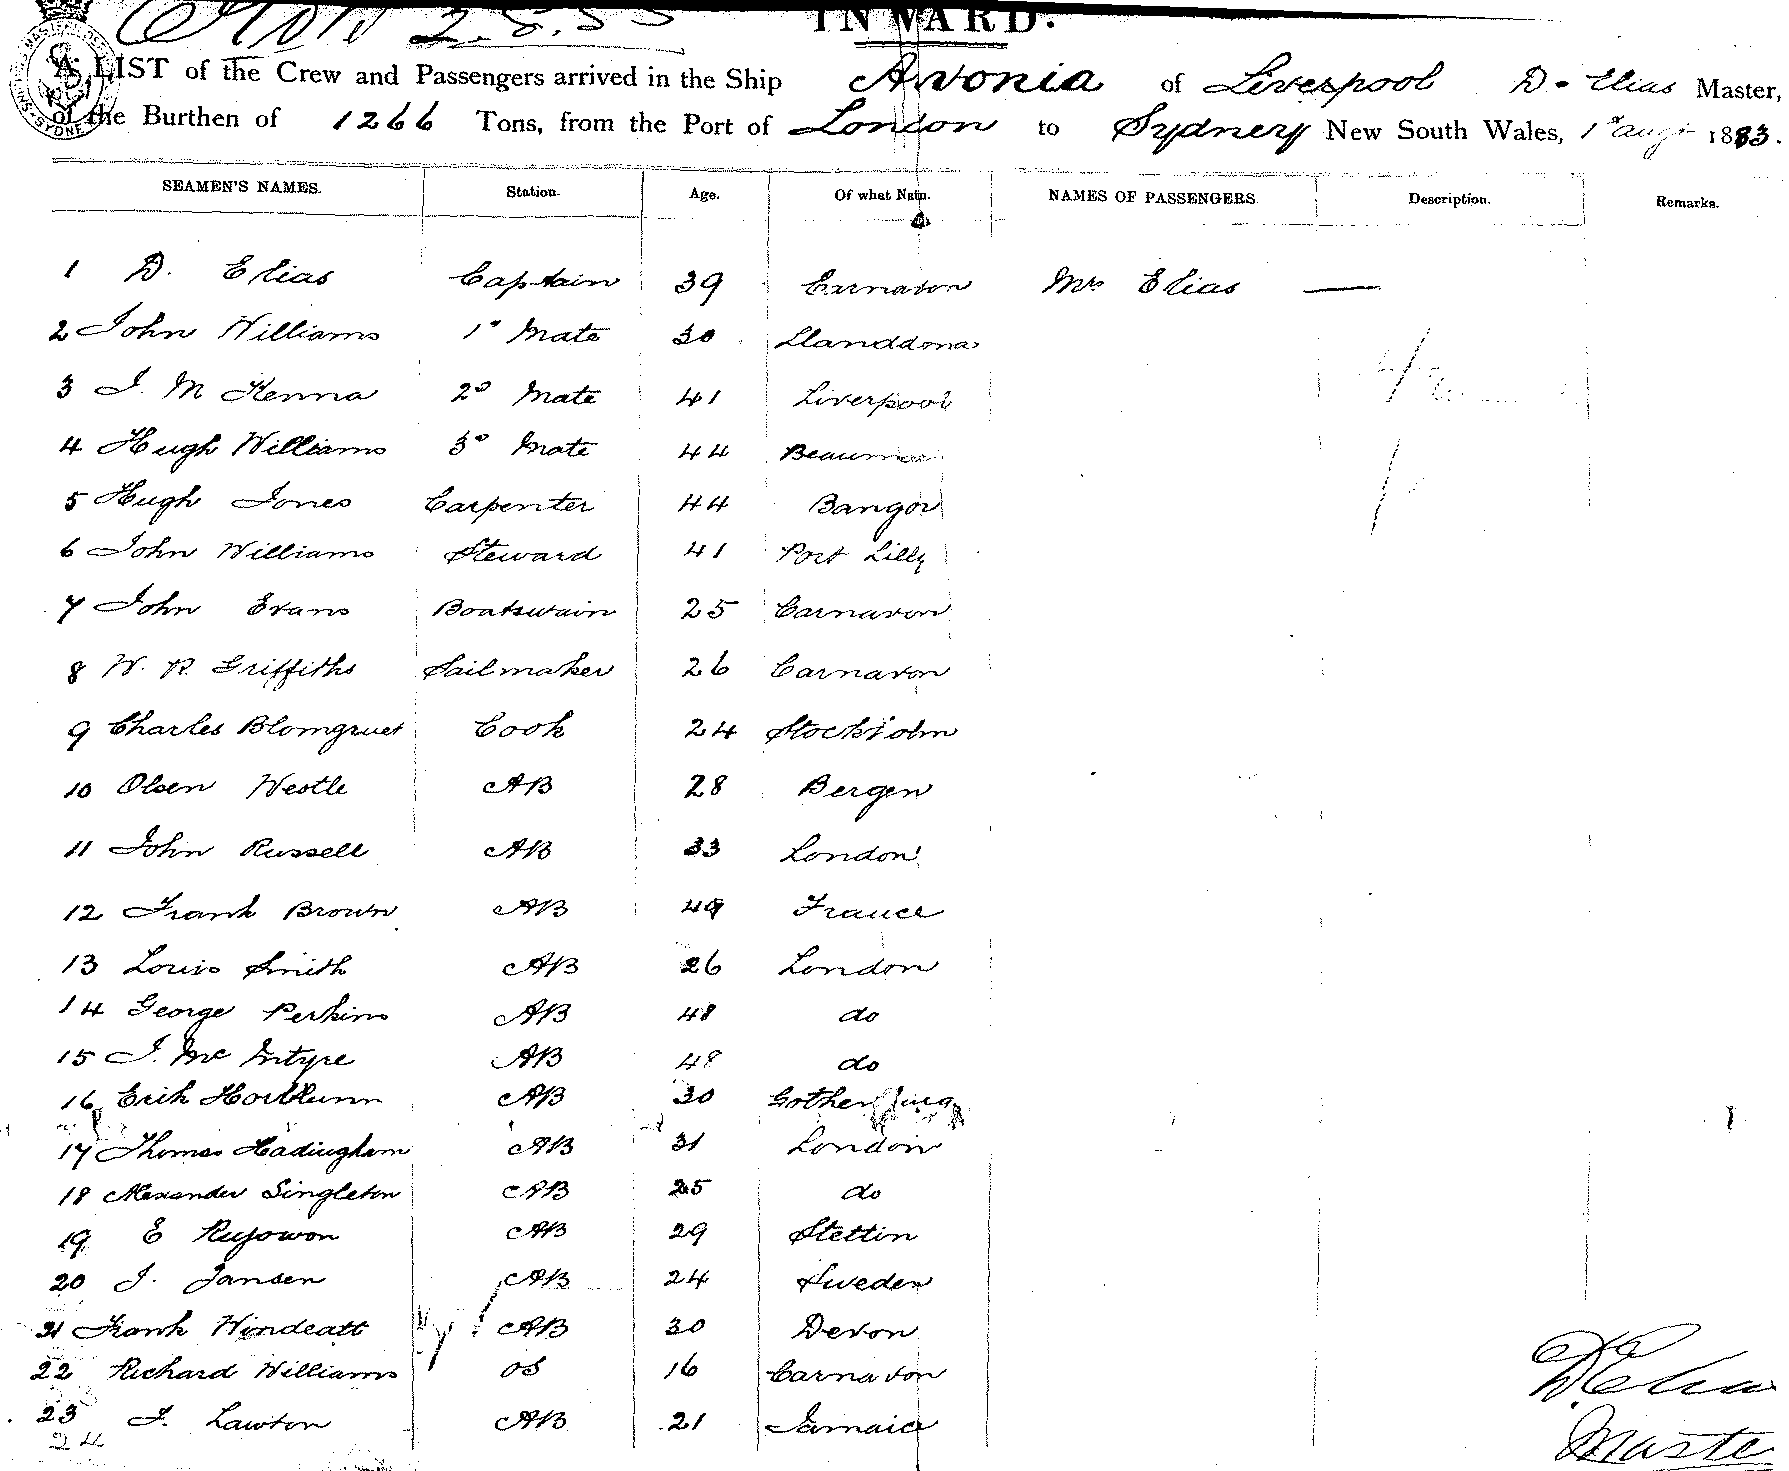 INWARD.
A LIST of the Crew and Passengers arrived in the Ship Avonia of Liverpool D. Elias Master,
of the Burthen of 1266 Tons, from the Port of London to Sydney New South Wales, 1st augt 1883.
SEAMEN'S NAMES. Station. Age. Of what Natn. NAMES OF PASSENGERS Description. Remarks.
1 D. Elias Captain 39 Carnavon Mrs Elias —
2 John Williams 1o Mate 30 Llanddona
3 J. M Kenna 2o Mate 41 Liverpool
4 Hugh Williams 3o Mate 44
5 Hugh Jones Carpenter 44 Bangor
6 John Williams Steward 41 Port Lilly
7 John Evans Boatswain 25 Carnavon
8 W. R. Griffiths Sailmaker 26 Carnavon
9 Charles Blomgruet Cook 24 Stockholm
10 Olsen Westle AB 28 Bergen
11 John Russell AB 33 London
12 Frank Brown AB 49 France
13 Louis Smith AB 26 London
14 George Perkins AB 48 do
15 J. Mc Intyre AB 48 do
16 Erik AB 30 Gothenburg
17 Thomas Hadingham AB 31 London
18 Alexander Singleton AB 25 do
19 E AB 29 Stettin
20 J. Jansen AB 24 Sweden
21 Frank Windeatt AB 30 Devon
22 Richard Williams OS 16 Carnavon
23 J. Lawton AB 21 Jamaica
24
D Elias
Master